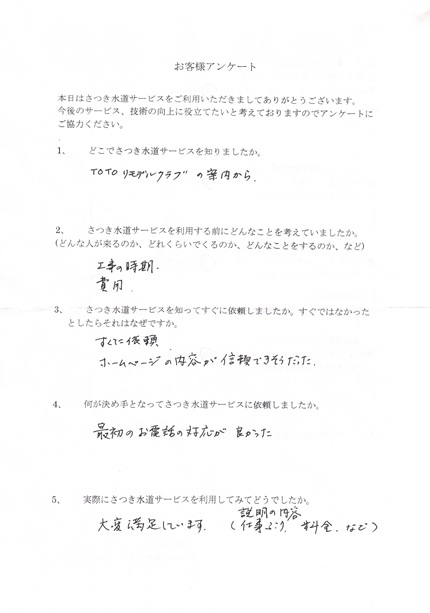 お客様アンケート
本日はさつき水道サービスをご利用いただきましてありがとうございます。
今後のサービス、技術の向上に役立てたいと考えておりますのでアンケートに
ご協力ください。
1、 どこでさつき水道サービスを知りましたか。
TOTOリモデルクラブの案内から.
2、 さつき水道サービスを利用する前にどんなことを考えていましたか。
(どんな人が来るのか、どれくらいでくるのか、どんなことをするのか、など)
工事の時期.
費用.
3、 さつき水道サービスを知ってすぐに依頼しましたか。すぐではなかった
としたらそれはなぜですか。
すぐに依頼.
ホームページの内容が信頼できそうだった.
4、 何が決め手となってさつき水道サービスに依頼しましたか。
最初のお電話の対応が良かった
5、 実際にさつき水道サービスを利用してみてどうでしたか。
説明の内容
大変満足しています. (仕事ぶり. 料金. など)